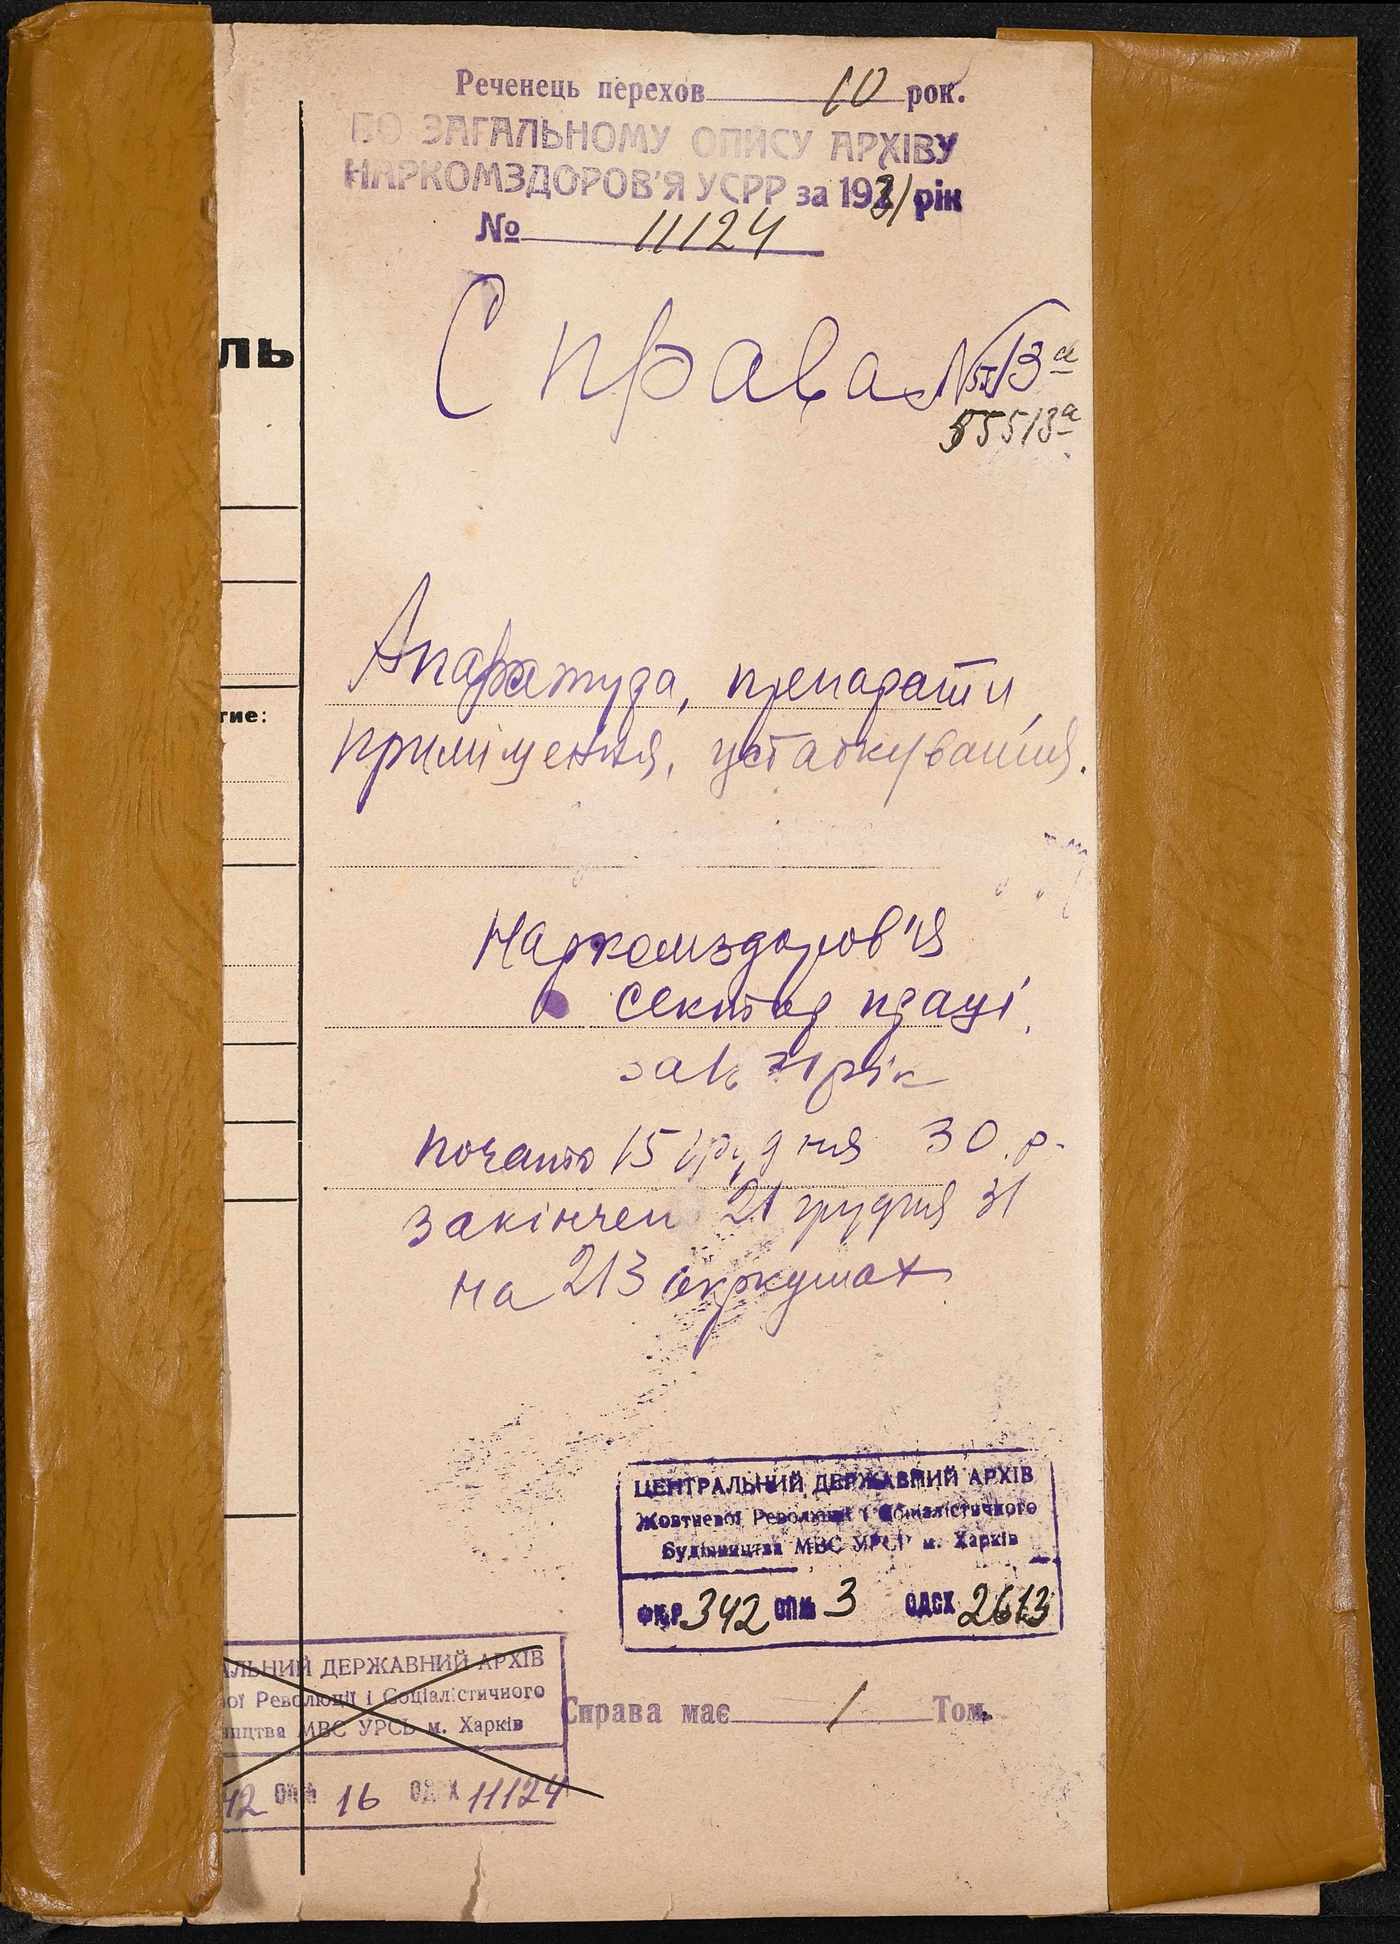 Реченець перехов 10 рок.
ПО ЗАГАЛЬНОМУ ОПИСУ АРХІВУ
НАРКОМЗДОРОВ'Я УСРР за 1931 рік
№ 11124
Справа № 13а
55513а
ль
Апаратура, препарати,
приміщення, устаткування.
тие:
Наркомздоров'я
Сектор праці,
за 31 рік
почато 15 грудня 30.р.
закінчен 21 грудня 31
на 213 аркушах
ЦЕНТРАЛЬНИЙ ДЕРЖАВНИЙ АРХІВ
Жовтневої Революції і Соціалістичного
Будівництва МВС УРСР м. Харків
ФКР 342 ОП№ 3 ОДСХ 2613
АЛЬНИЙ ДЕРЖАВНИЙ АРХІВ
ої Революції і Соціалістичного
ництва МВС УРСР м. Харків
42 ОП№ 16 ОДСХ 11124
Справа має 1 Том.